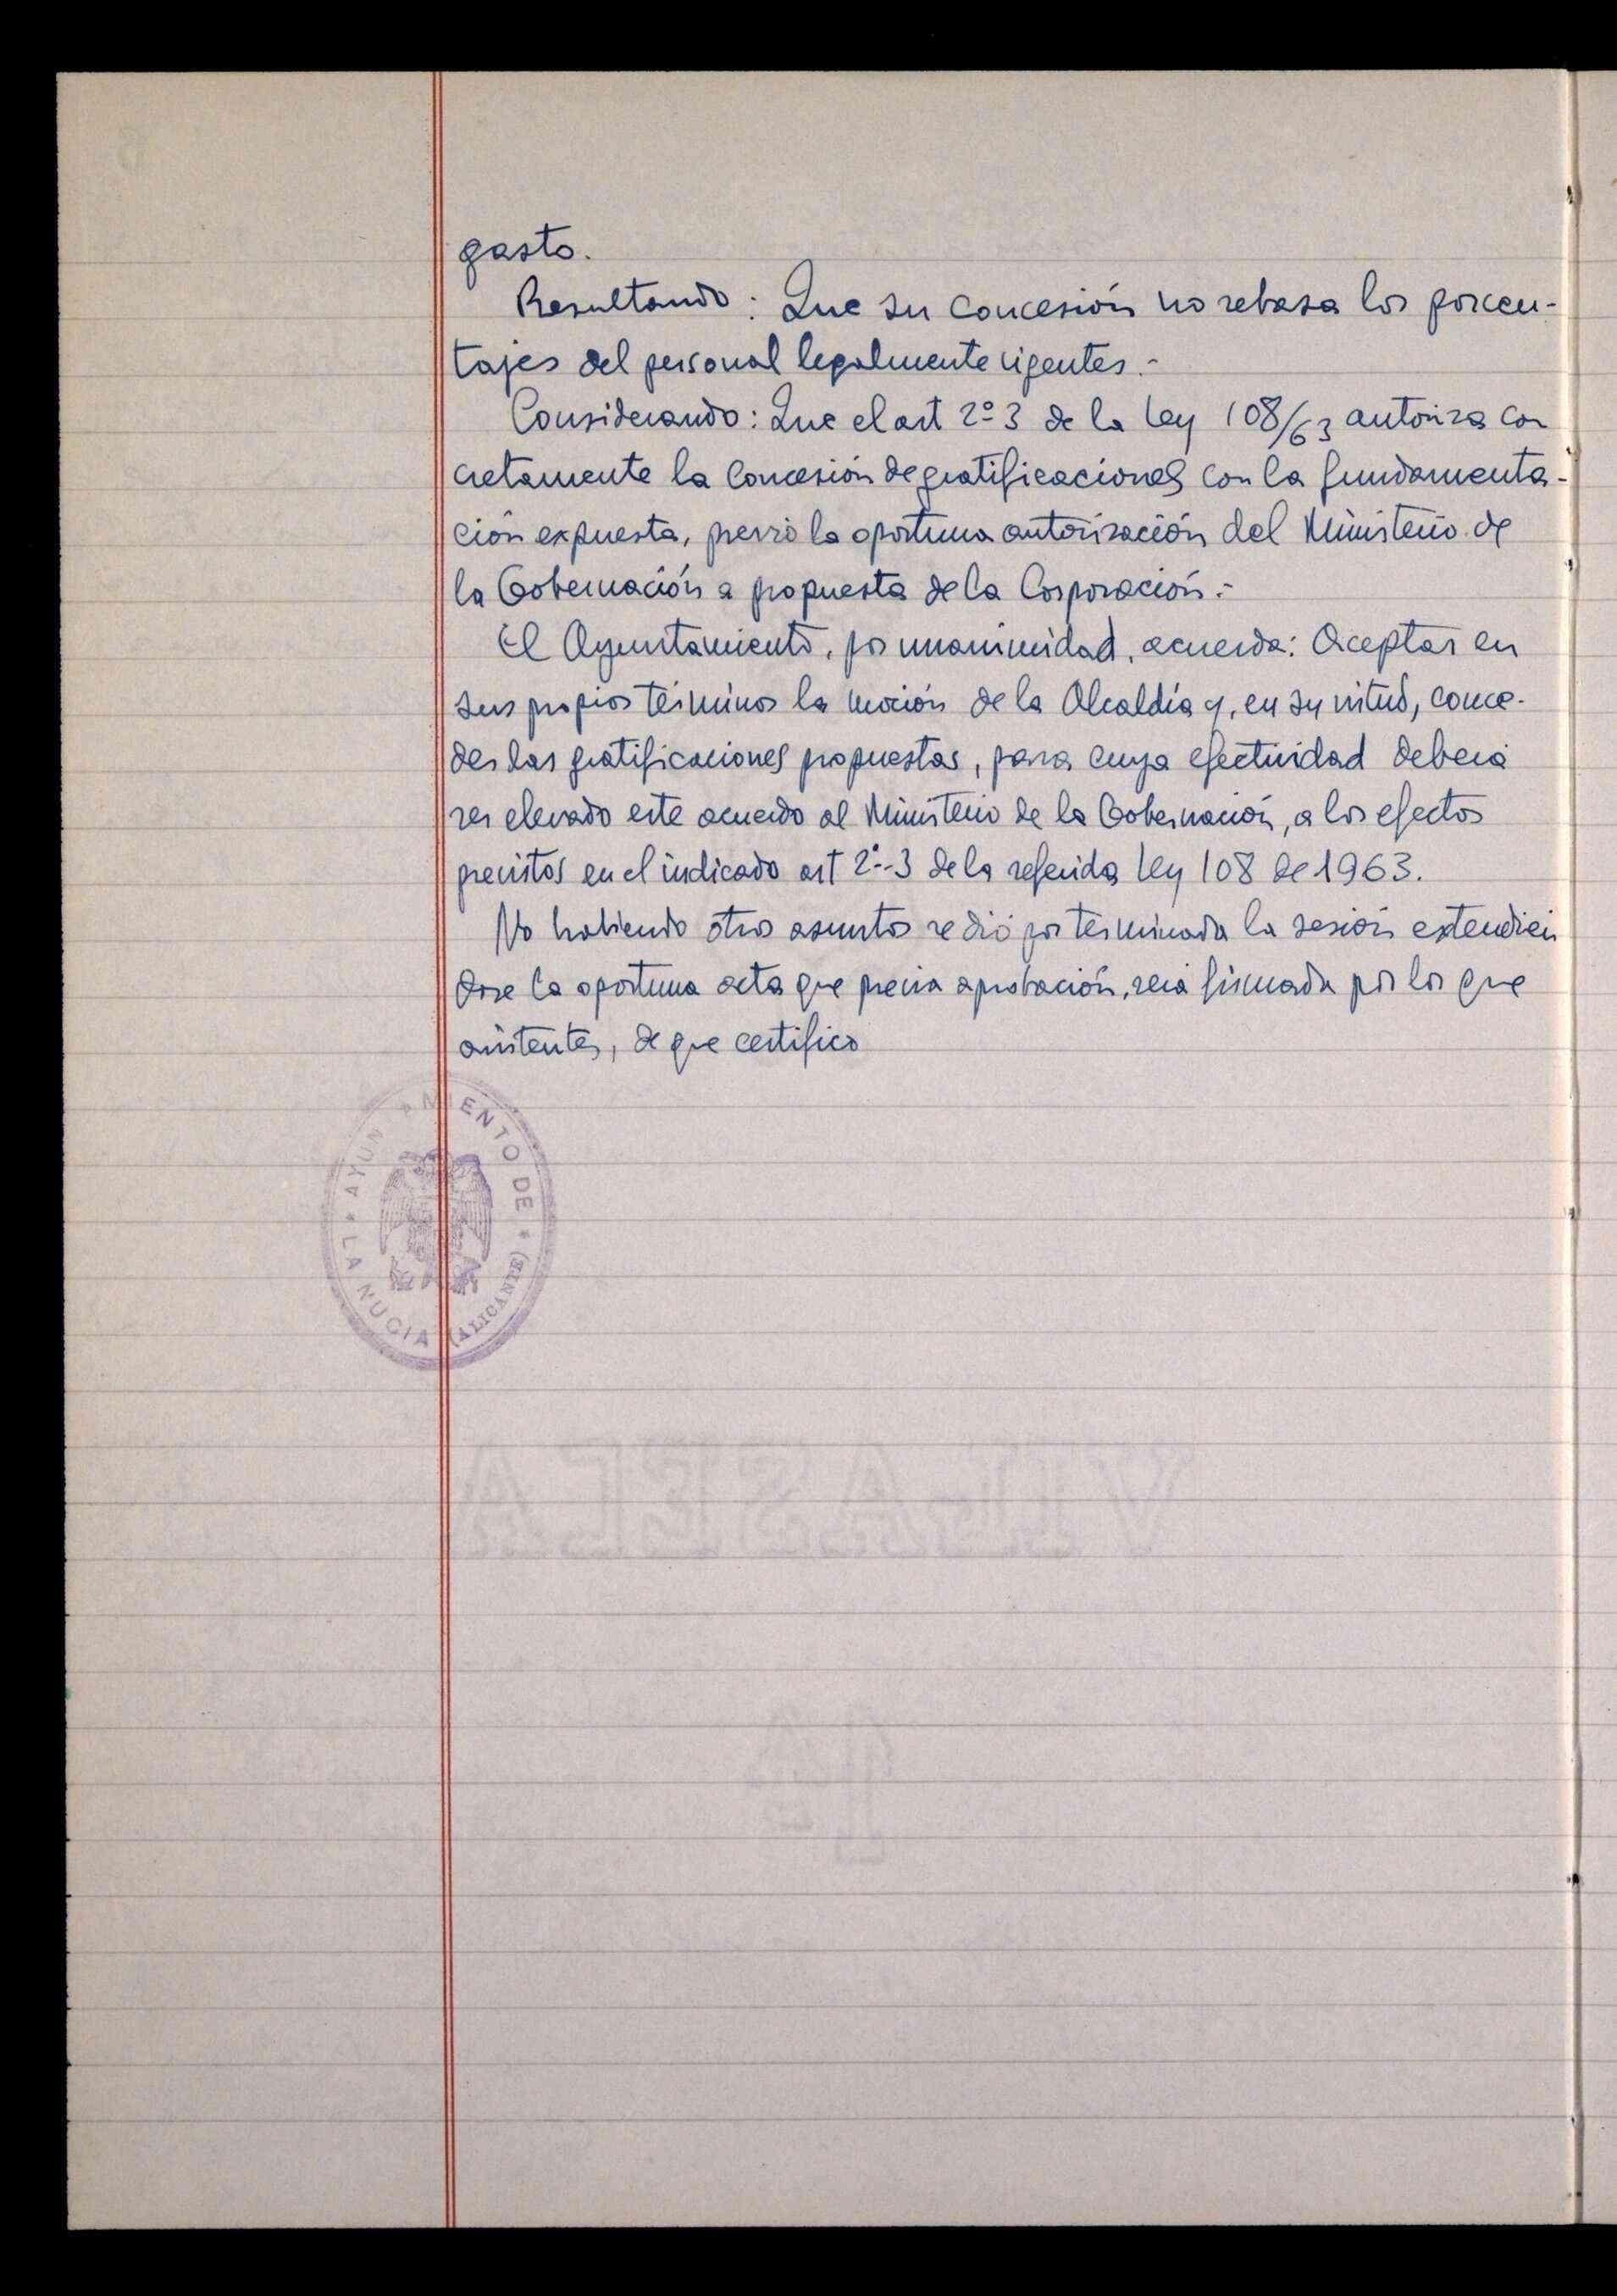 gasto.
Resultando: Que su concesión no rebasa los porcen-
tajes del personal legalmente vigentes.-
Considerando: Que el art 2º 3 de la Ley 108/63 autoriza con
cretamente la concesión de gratificaciones con la fundamenta-
ción expuesta, previo la oportuna autorización del Ministerio de
la Gobernación a propuesta de la Corporación.-
El Ayuntamiento, por unanimidad, acuerda: Aceptar en
sus propios términos la moción de la Alcaldía y, en su virtud, conce-
der las gratificaciones propuestas, para cuya efectividad deberá
ser elevado este acuerdo al Ministerio de la Gobernación, a los efectos
previstos en el indicado art 2º-3 de la referida Ley 108 de 1963.
No habiendo otros asuntos se dió por terminada la sesión extendien
dose la oportuna acta que previa aprobación, será firmada por los que
asistentes, de que certifico
AYUNTAMIENTO DE
* LA NUCIA (ALICANTE) *